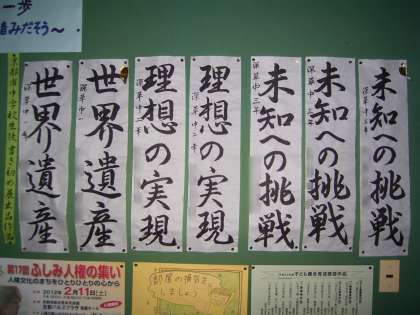 一歩
踏みだそう〜
京都市中学校生徒書き初め展出品作品
世界遺産
深草中一年
世界遺産
深草中一
理想の実現
深草中二年
理想の実現
深草中二年
未知への挑戦
深草中三年
未知への挑戦
深草中三年
未知への挑戦
深草中三年
第17回
ふしみ人権の集い
人権文化のまちをひとりひとりの心から
2012年2月11日(土)
部屋の換気を
しましょう